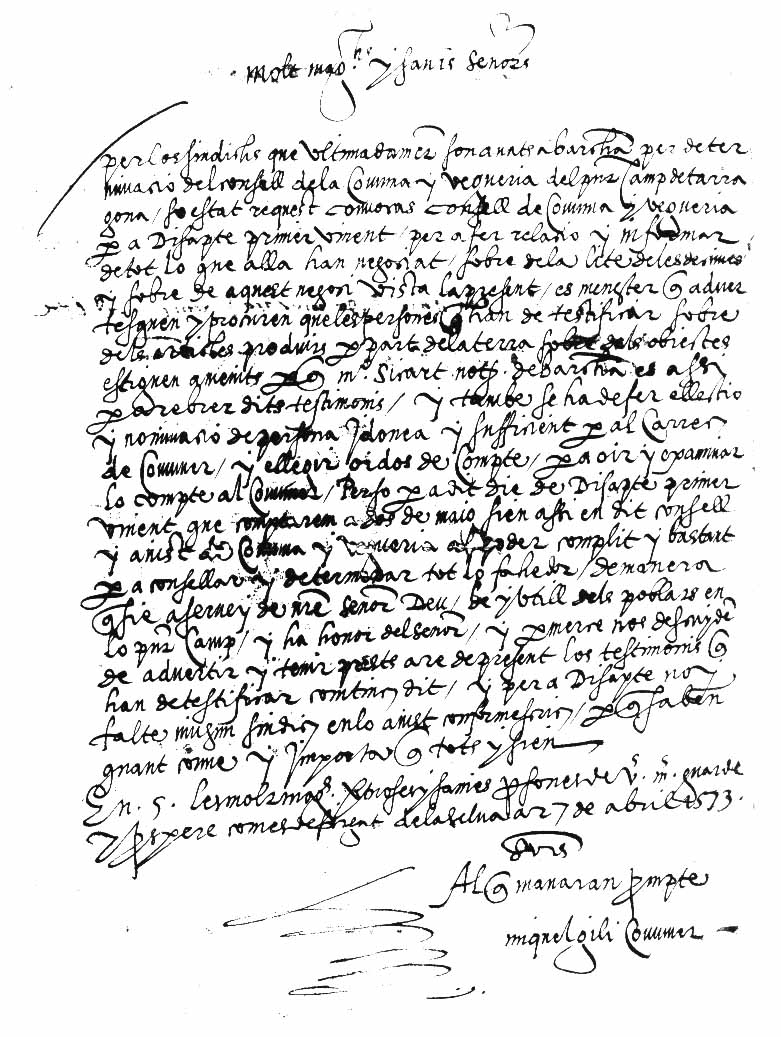 molt mag.chs y savis señors
per los sindichs que ultimadament son anats a barchna per deter
minacio del consell de la Comuna y vegueria del pnt Camp de tarra
gona / so estat request convocas consell de Comuna y vegueria
p a Disapte primer vinent / per a fer relacio y informar
de tot lo que alla han negociat / sobre de la lite de les
y sobre de aquest negoci vista la present / es menester q adver
tesquen y procuren que les persones q han de testificar sobre
dels articles produits p part de la terra sobre dels obiectes
estiguen amenits m.º Sicart not.º de barchna es assi
p a rebrer dits testimonis / y tambe se ha de fer ellectio
y nominacio de persona Idonea y sufficient p al Carrec
de Comuner / y ellegir oidos de Compte / p a oir y examinar
lo compte al Comuner / Perso p a dit die de Disapte primer
vinent que comptarem a dos de maio sien assi en dit consell
y aiust de Comuna y vegueria ab poder complit y bastant
p a consellar y determenar tot lo fahedor / de manera
q sie a servey de nre señor Deu / be y utill dels poblats en
lo pnt Camp / y ha honor del señor / y p merce nos descuyden
de advertir y tenir prests are de present los testimonis q
han de testificar contingut dit / y per a Disapte noy
falte ningun sindic en lo aiust conforme / p q saben
quant conve y Importa q tots y sien
En. S. les molt mag.s y savies psones de v. m. guarde
y pspere com es de la selva a 27 de abril 1573.
Al q manaran prompte
miquel gili Comuner